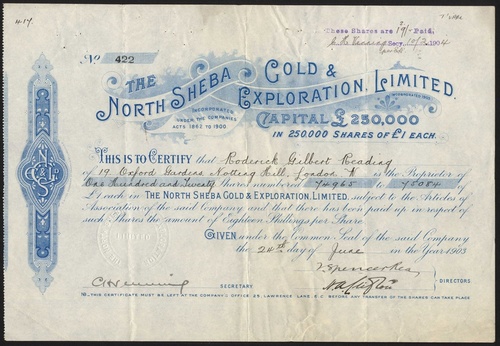 These Shares are 19/- Paid,
Secy. 10/2/1904
No 422
THE NORTH SHEBA GOLD & EXPLORATION, LIMITED.
INCORPORATED UNDER THE COMPANIES ACTS 1862 TO 1900
CAPITAL £250,000
IN 250,000 SHARES OF £1 EACH.
THIS IS TO CERTIFY that Roderick Gilbert Reading
of 19, Oxford Gardens Notting Hill, London W is the Proprietor of
One Hundred and Twenty Shares numbered 74965 to 75084 of
£1 each in THE NORTH SHEBA GOLD & EXPLORATION, LIMITED, subject to the Articles of
Association of the said Company and that there has been paid up in respect of
such Shares the amount of Eighteen Shillings per Share
GIVEN under the Common Seal of the said Company
the 24th day of June in the Year 1903
SECRETARY
DIRECTORS
NB. THIS CERTIFICATE MUST BE LEFT AT THE COMPANY'S OFFICE 25, LAWRENCE LANE, E.C. BEFORE ANY TRANSFER OF THE SHARES CAN TAKE PLACE